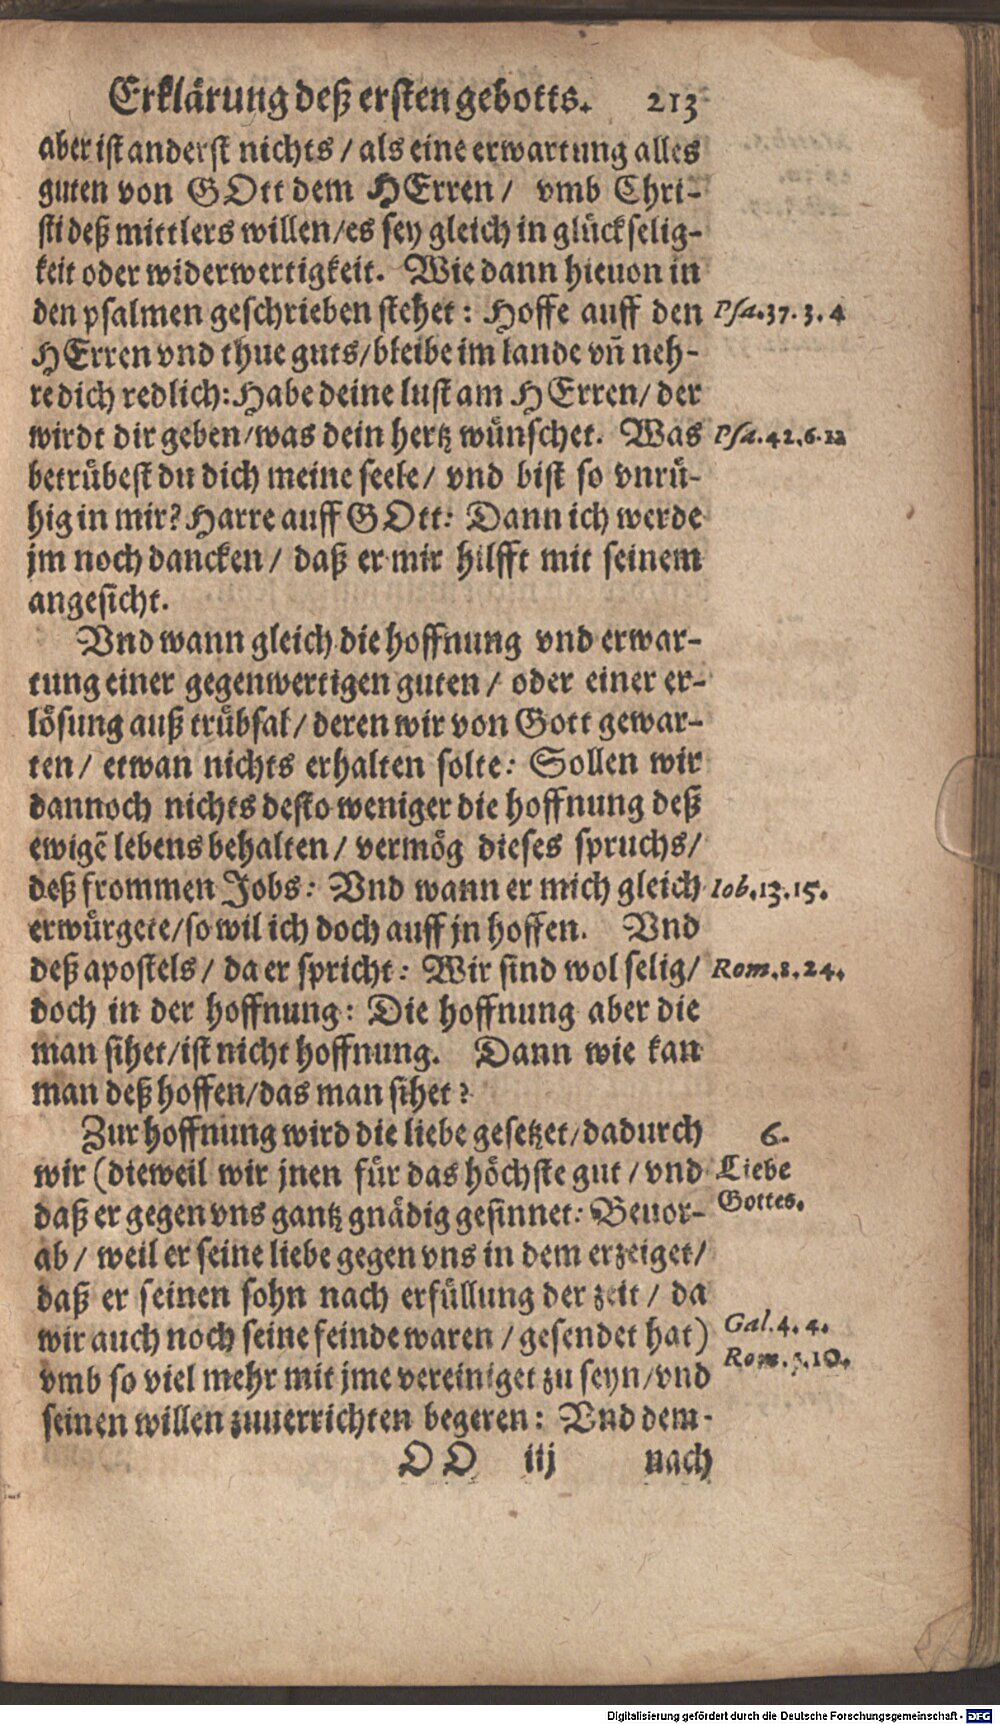 Erklärung deß ersten gebotts. 213
aber ist anderst nichts / als eine erwartung alles
guten von GOtt dem HErren / vmb Chri-
sti deß mittlers willen/es sey gleich in glückselig-
keit oder widerwertigkeit. Wie dann hieuon in
den psalmen geschrieben stehet: Hoffe auff den Psa.37.3.4
HErren vnd thue guts/bleibe im lande vn̄ neh-
re dich redlich: Habe deine lust am HErren/ der
wirdt dir geben/was dein hertz wünschet. Was Psa.42.6.12
betrübest du dich meine seele/ vnd bist so vnrü-
hig in mir? Harre auff GOtt: Dann ich werde
jm noch dancken / daß er mir hilfft mit seinem
angesicht.
Vnd wann gleich die hoffnung vnd erwar-
tung einer gegenwertigen guten / oder einer er-
lösung auß trübsal / deren wir von Gott gewar-
ten / etwan nichts erhalten solte: Sollen wir
dannoch nichts desto weniger die hoffnung deß
ewigẽ lebens behalten / vermög dieses spruchs/
deß frommen Jobs: Vnd wann er mich gleich Iob.13.15.
erwürgete/so wil ich doch auff jn hoffen. Vnd
deß apostels / da er spricht: Wir sind wol selig/ Rom.8.24.
doch in der hoffnung: Die hoffnung aber die
man sihet/ist nicht hoffnung. Dann wie kan
man deß hoffen/das man sihet?
Zur hoffnung wird die liebe gesetzet/dadurch 6.
wir (dieweil wir jnen für das höchste gut / vnd Liebe
daß er gegen vns gantz gnädig gesinnet: Beuor- Gottes.
ab / weil er seine liebe gegen vns in dem erzeiget/
daß er seinen sohn nach erfüllung der zeit / da
wir auch noch seine feinde waren / gesendet hat) Gal.4.4.
vmb so viel mehr mit jme vereiniget zu seyn/vnd Rom.5.10.
seinen willen zuuerrichten begeren: Vnd dem-
OO iij nach
Digitalisierung gefördert durch die Deutsche Forschungsgemeinschaft - DFG